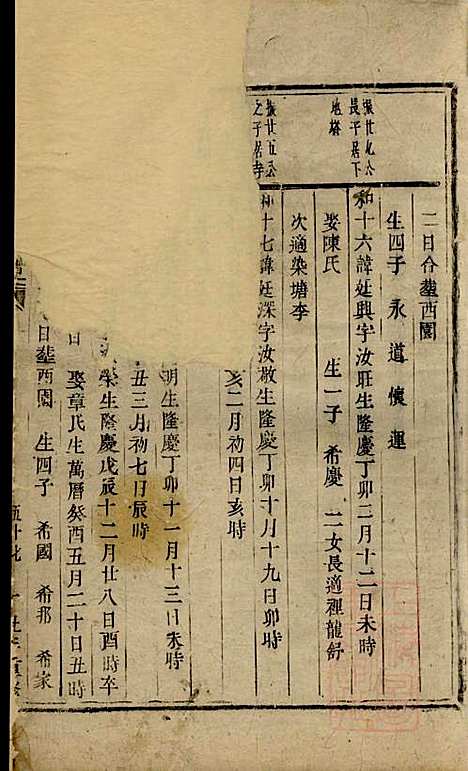 二日合塟西園
生四子 永 道 懷 運
振廿九公
長子居下
地塔
和十六諱廷興字汝旺生隆慶丁卯二月十二日未時
娶陳氏 生一子 希慶 二女長適裡龍舒
次適染塘李
振廿五公
之子居寺
和十七諱廷深字汝敬生隆慶丁卯十月十九日卯時
亥二月初四日亥時
明生隆慶丁卯十一月十三日未時
丑三月初七日辰時
榮生隆慶戊辰十二月廿八日酉時卒
日 娶章氏生萬曆癸酉五月二十日丑時
日塟西園 生四子 希國 希邦 希家